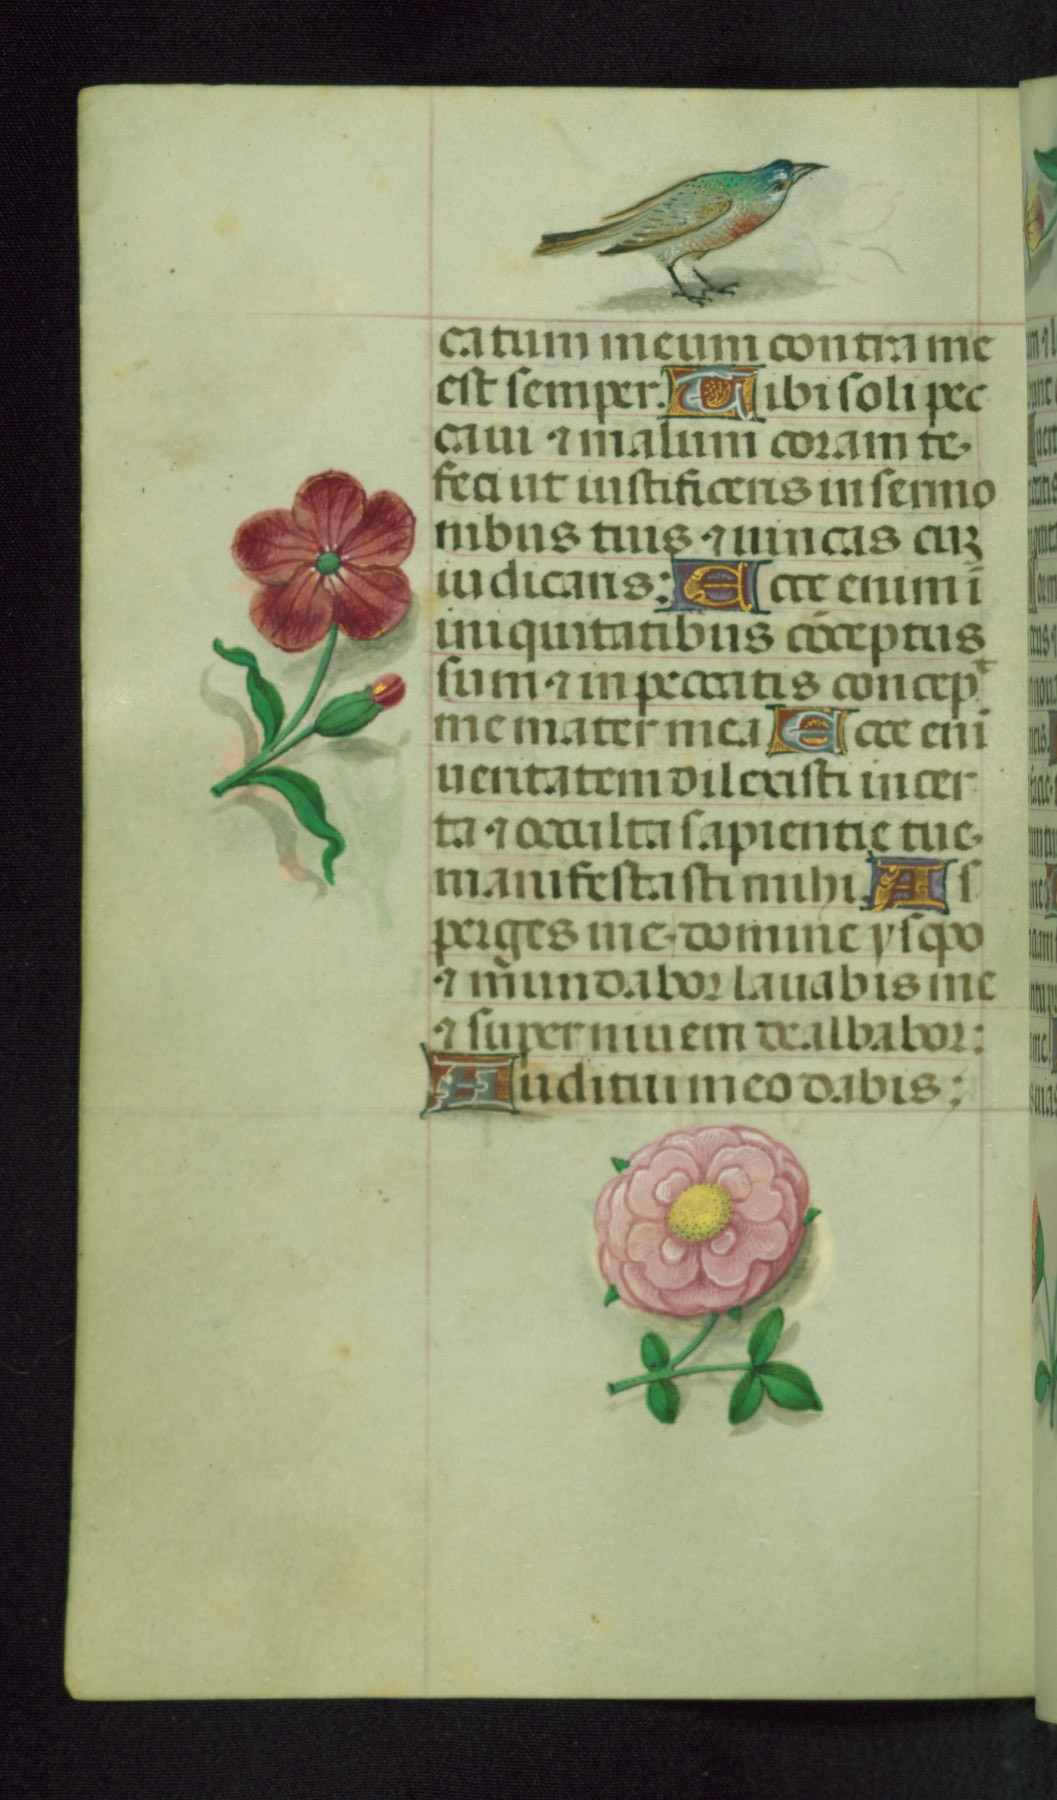 catum meum contra me
est semper. Tibi soli pec
caui ⁊ malum coram te
feci ut iustificeris in sermo
nibus tuis ⁊ uincas cũ
iudicaris: Ecce enim ĩ
iniquitatibus cõceptus
sum ⁊ in peccatis concepᵗ
me mater mea Ecce eni̅
ueritatem dilexisti incer
ta ⁊ occulta sapientie tue
manifestasti mihi. As
perges me domine ysopo
⁊ mundabor lauabis me
⁊ super niuem dealbabor:
Auditui meo dabis: